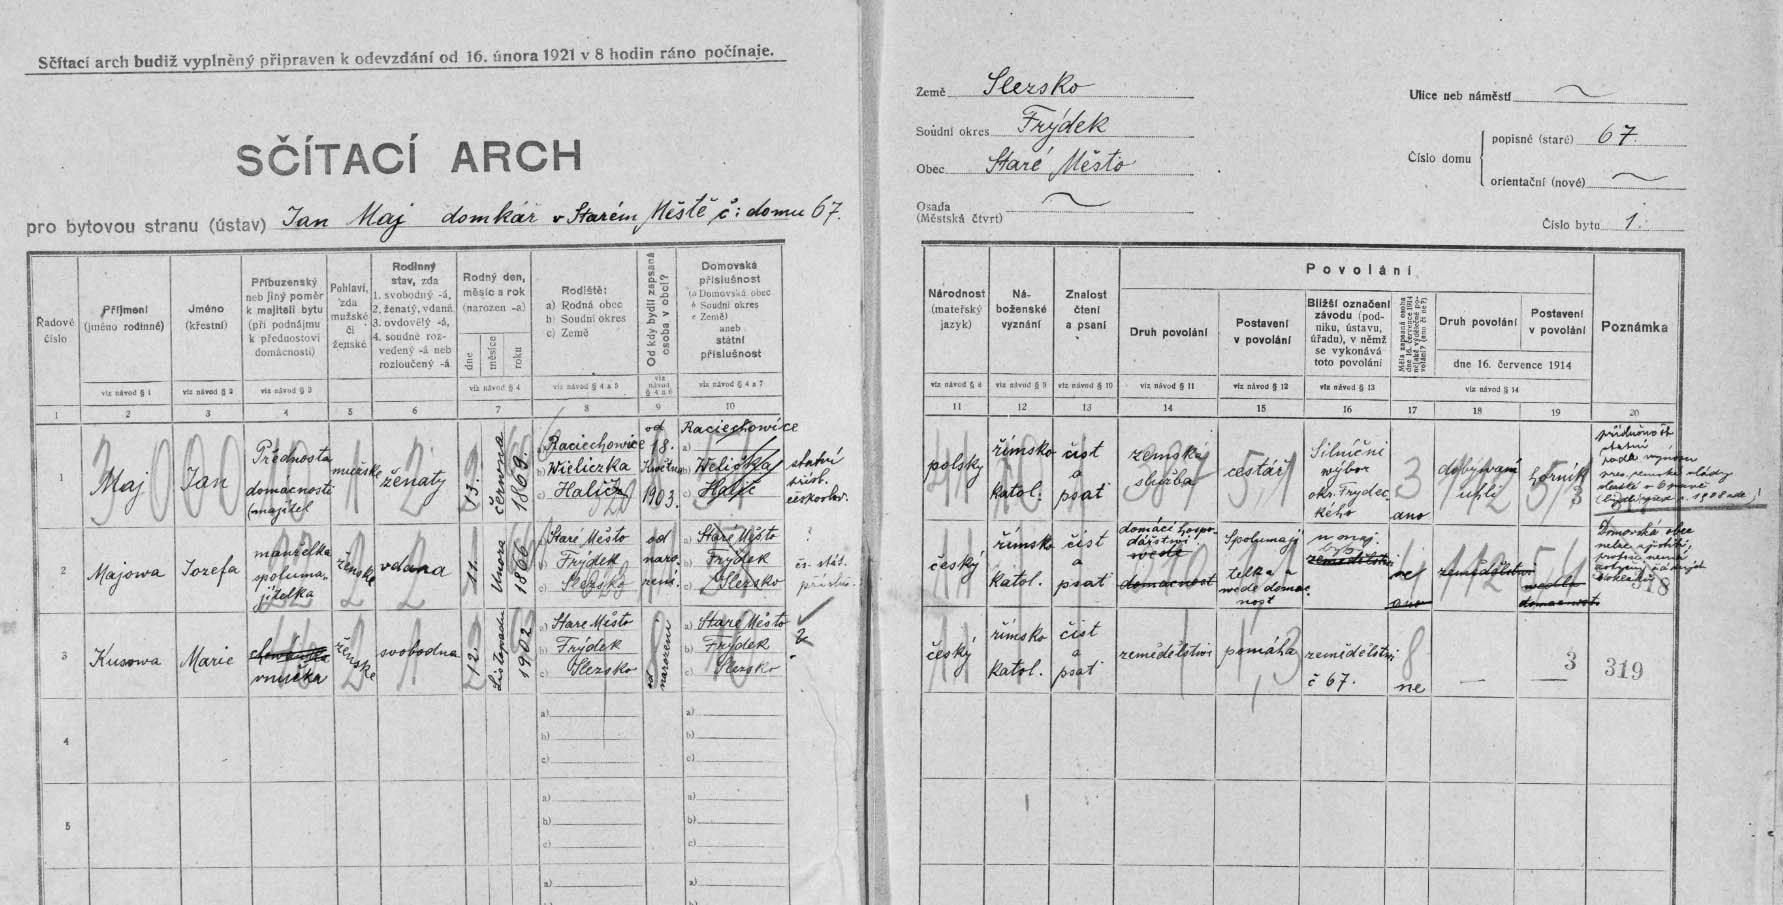 Sčítací arch budiž vyplněný připraven k odevzdání od 16. února 1921 v 8 hodin ráno počínaje.
SČÍTACÍ ARCH
pro bytovou stranu (ústav) Jan Maj domkář v Starém Městě č: domu 67.
Řadové číslo
Příjmení (jméno rodinné)
viz návod § 1
Jméno (křestní)
viz návod § 2
Příbuzenský neb jiný poměr k majiteli bytu (při podnájmu k přednostovi domácnosti)
viz návod § 3
Pohlaví, zda mužské či ženské
Rodinný stav, zda
1. svobodný -á,
2. ženatý, vdaná
3. ovdovělý -á,
4. soudně rozvedený -á neb rozloučený -á
Rodný den, měsíc a rok (narozen -a)
dne
měsíce
roku
viz návod § 4
Rodiště:
a) Rodná obec
b) Soudní okres
c) Země
viz návod § 4 a 5
Od kdy bydlí zapsaná osoba v obci?
viz návod § 4 a 6
Domovská příslušnost
(a Domovská obec
b Soudní okres
c Země)
aneb státní příslušnost
viz návod § 4 a 7
1 2 3 4 5 6 7 8 9 10
1
Maj
Jan
Přednosta
domácnosti
(majitel
mužske
ženaty
13.
června
1869.
a) Raciechowice
b) Wieliczka
c) Halič
od
18.
Května
1903.
Raciechowice
a)
b) Welička
c) Halič
státní
přísl.
českoslov.
2
Majowa
Jozefa
manželka
spoluma-
jitelka
ženske
vdana
11.
Února
1866
a) Staré Město
b) Frýdek
c) Slezsko
od
naro-
zení.
a) Staré Město
b) Frýdek
c) Slezsko
?
čs. stát.
3
Kusowa
Marie
vnučka
ženske
svobodna
12
Listopadu
1902
a) Stare Město
b) Frýdek
c) Slezsko
od narození
a) Staré Město
b) Frýdek
c) Slezsko
4
a)
b)
c)
a)
b)
c)
5
a)
b)
c)
a)
b)
c)
a)
a)
Země Slezsko
Soudní okres Frýdek
Obec Staré Město
Osada (Městská čtvrt)
Ulice neb náměstí
Číslo domu
popisné (staré) 67.
orientační (nové)
Číslo bytu 1.
Národnost (mateřský jazyk)
viz návod § 8
Náboženské vyznání
viz návod § 9
Znalost čtení a psaní
viz návod § 10
Povolání
Druh povolání
viz návod § 11
Postavení v povolání
viz návod § 12
Bližší označení závodu (podniku, ústavu, úřadu), v němž se vykonává toto povolání
viz návod § 13
Měla zapsaná osoba dne 16. července 1914 nějaké výdělečné povolání? (ano či ne?)
Druh povolání
Postavení v povolání
dne 16. července 1914
viz návod § 14
Poznámka
11 12 13 14 15 16 17 18 19 20
polsky
římsko
katol.
čist
a
psat
zemska
služba
cestář
Silniční
wýbor
okr. Frydec-
kého
3
ano
dobýwani
uhlí
horník
3
český
římsko
katol.
čist
a
psat
domácí hospo-
dářstwi
wede
domacnost
Spolumaji
telka a
wede domac-
nost
zemědělstwi
ne
ano
zemědělstwi
wedla
domacnost
Domovská obec
318
český
římsko
katol.
čist
a
psat
zemědělstwi
pomáha
zemědělstwi
č 67.
8
ne
—
3
—
319